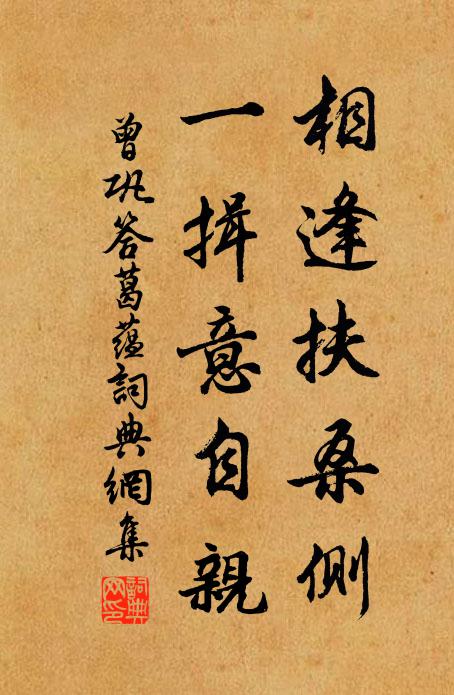 相逢扶桑側
一揖意自親
曾巩答葛蘊詞典網集
詞典網印